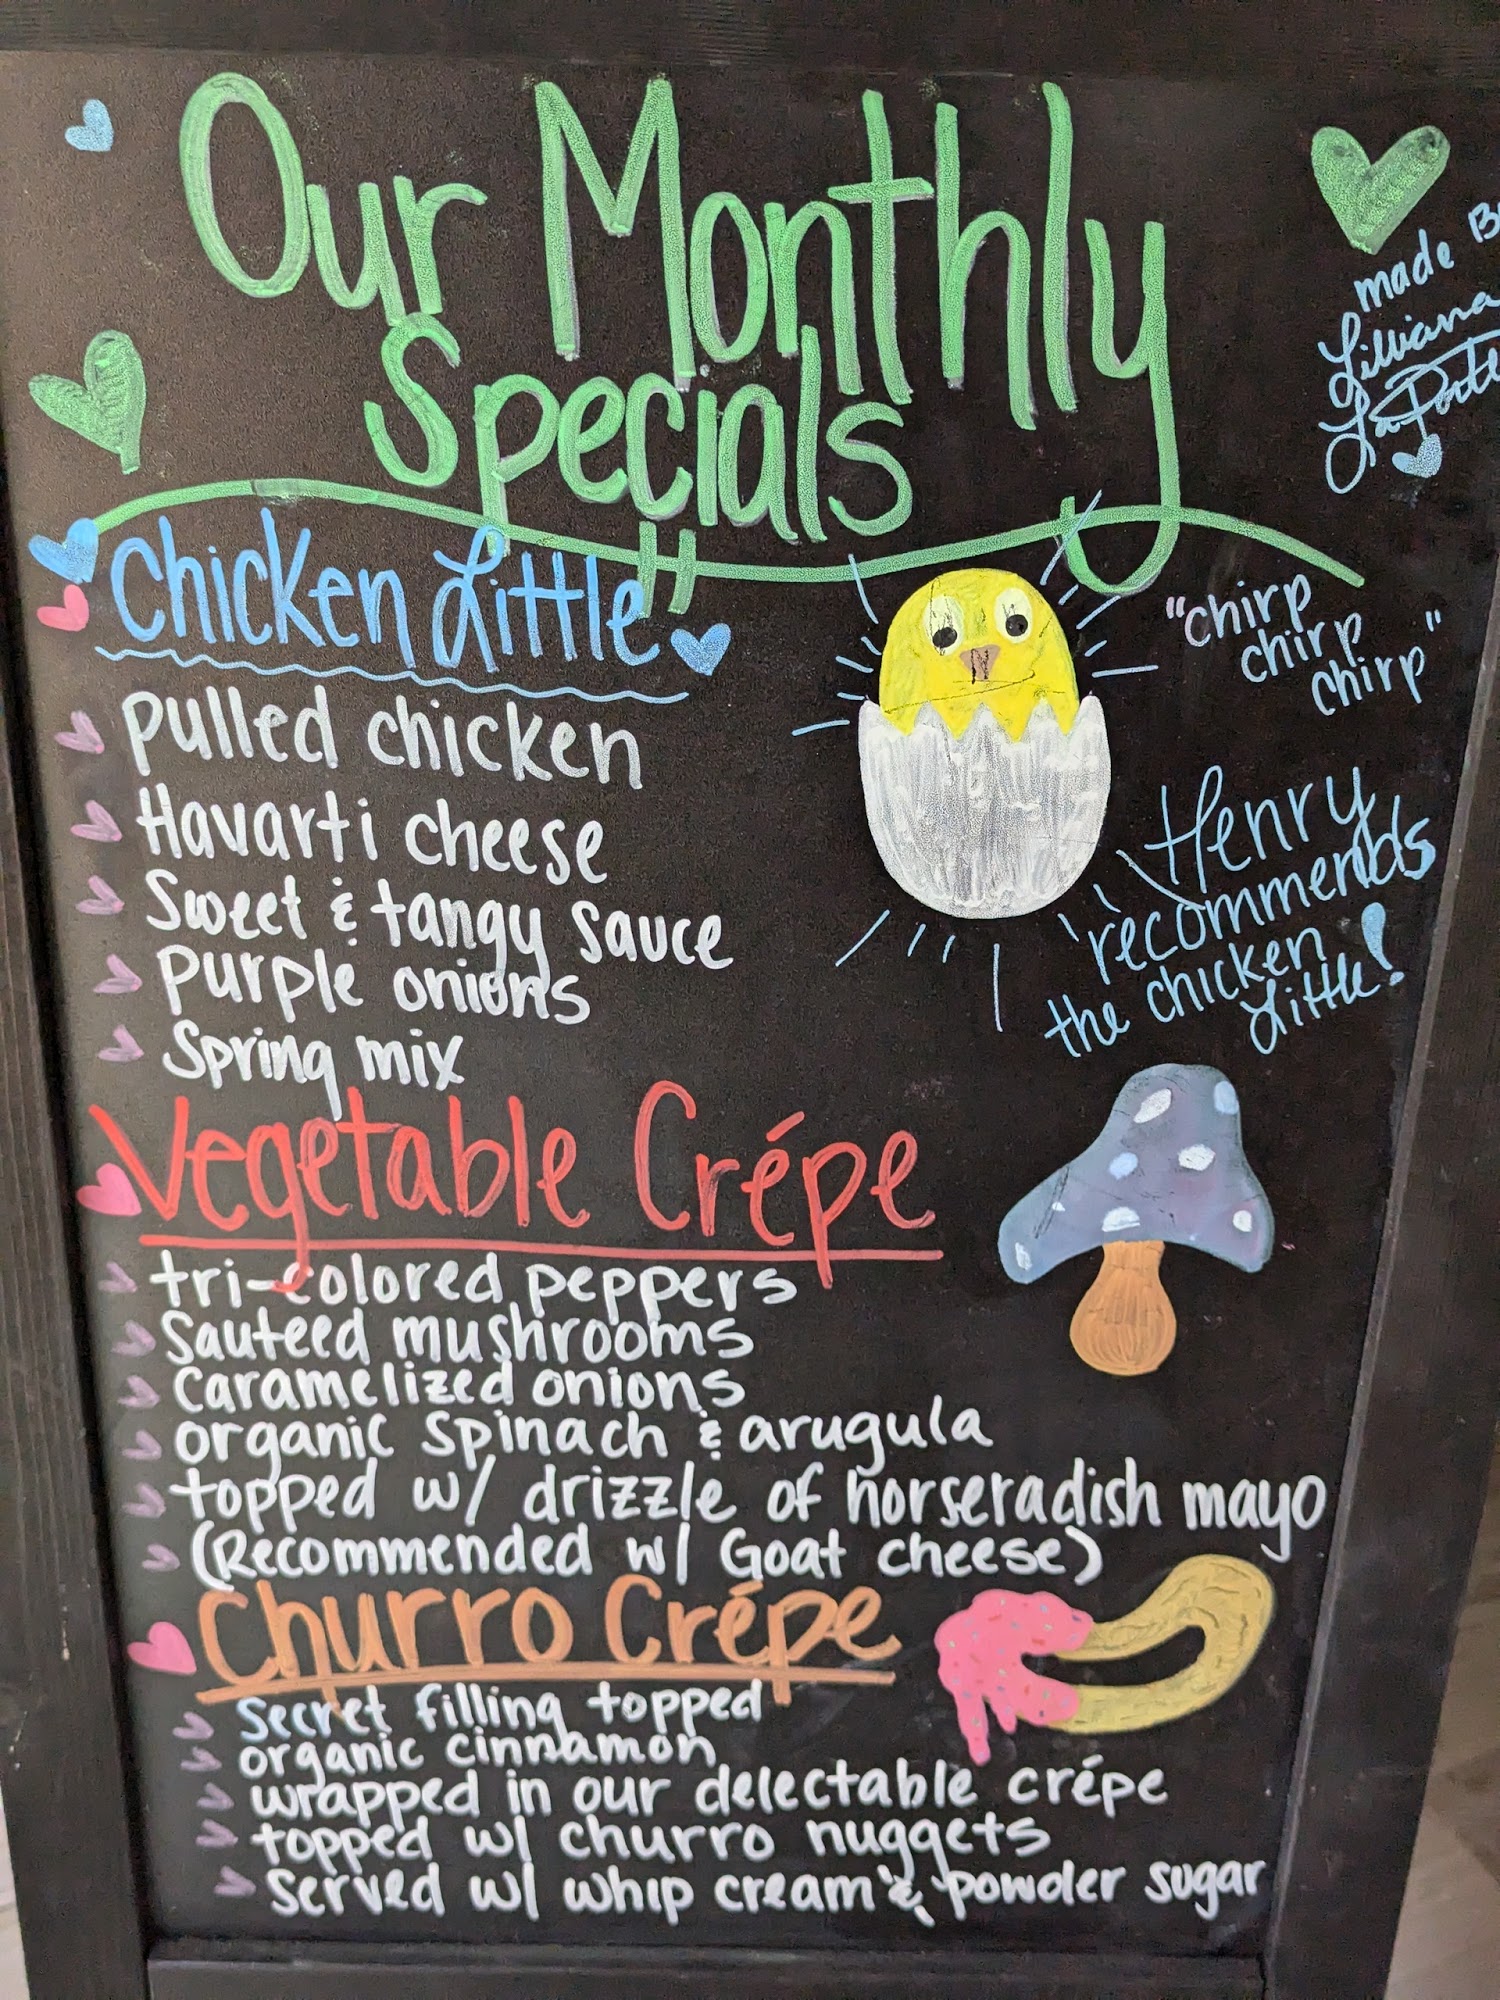 Our Monthly
Specials
made B
Lilviana
Chicken Little
"chirp
chirp
chirp"
pulled chicken
Havarti cheese
Sweet & tangy sauce
purple onions
Spring mix
Henry
recommends
the chicken
Little!
Vegetable Crépe
tri-colored peppers
Sauteed mushrooms
Caramelized onions
organic spinach & arugula
topped w/ drizzle of horseradish mayo
(Recommended w/ Goat cheese)
Churro Crépe
Secret filling topped
organic cinnamon
wrapped in our delectable crépe
topped w/ churro nuggets
Served w/ whip cream & powder sugar